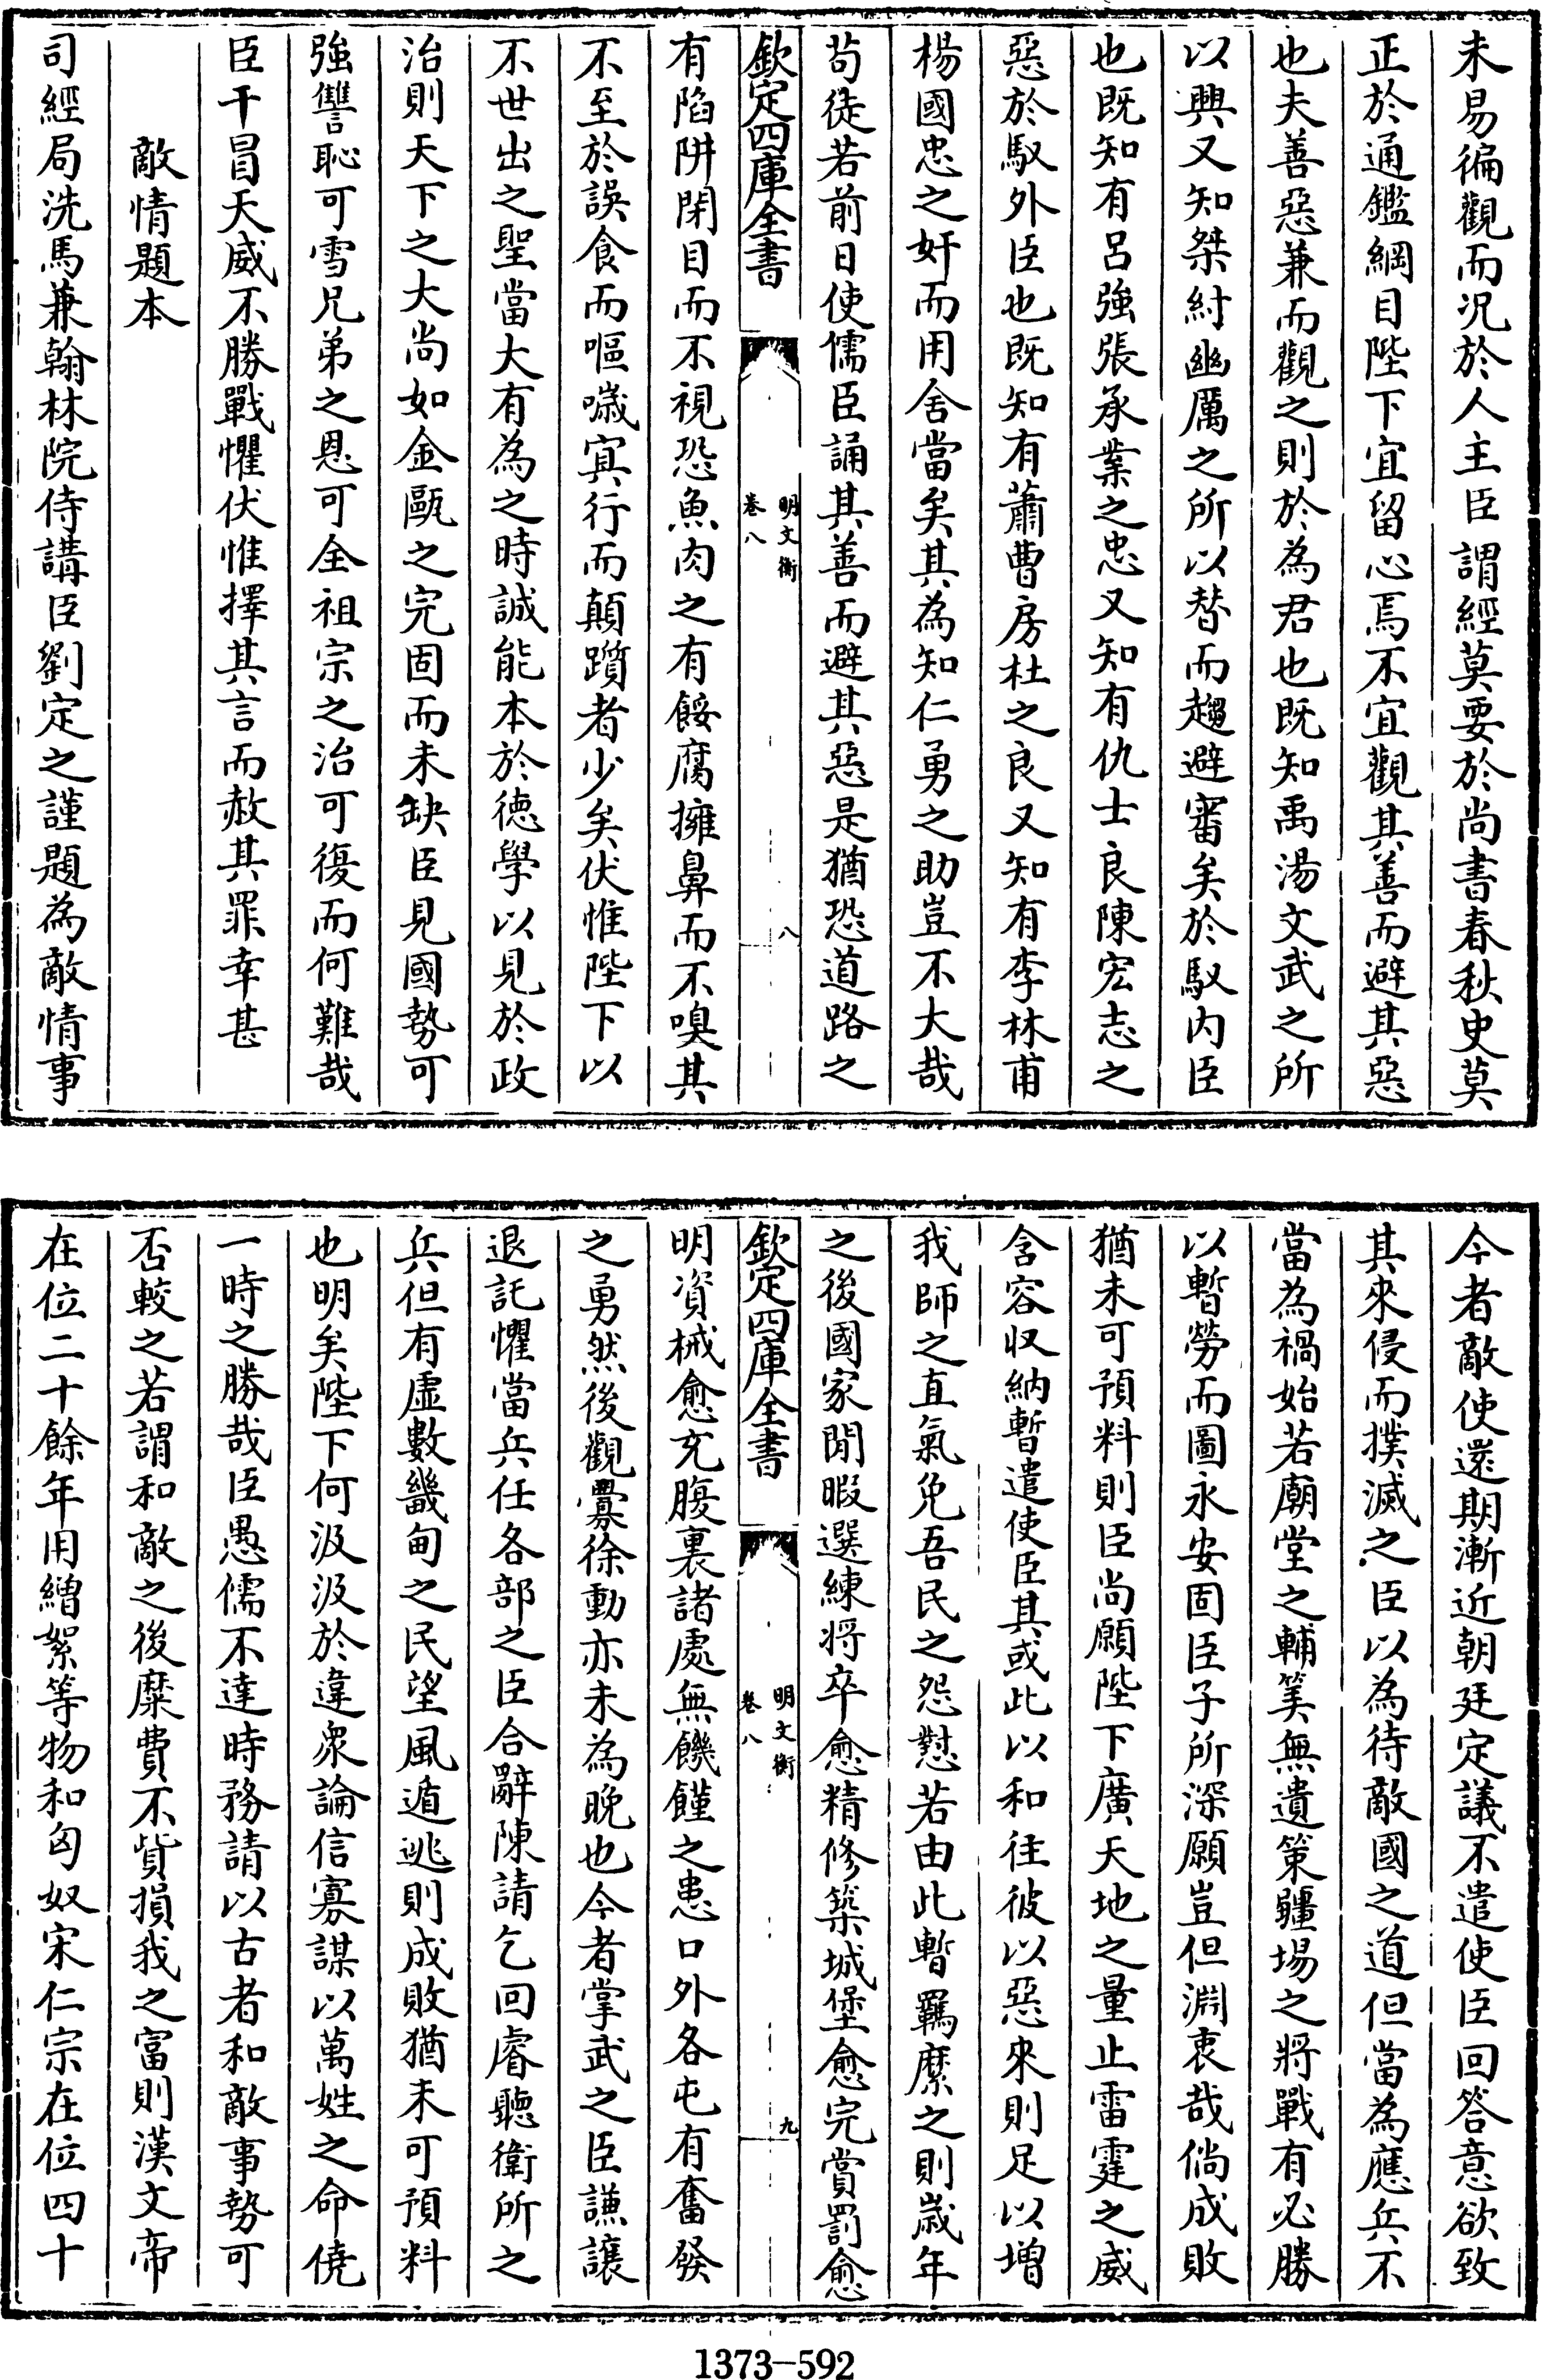 未易徧觀而况於人主臣謂經莫要於尚書春秋史莫
正於通鑑綱目陛下宜留心焉不宜觀其善而避其惡
也夫善惡兼而觀之則於為君也既知禹湯文武之所
以興又知桀紂幽厲之所以替而趨避審矣於馭内臣
也既知有呂強張承業之忠又知有仇士良陳宏志之
惡於馭外臣也既知有蕭曹房杜之良又知有李林甫
楊國忠之奸而用舍當矣其為知仁勇之助豈不大哉
苟徒若前日使儒臣誦其善而避其惡是猶恐道路之
欽定四庫全書
明文衡
卷八
八
有陷阱閉目而不視恐魚肉之有餒腐擁鼻而不嗅其
不至於誤食而嘔噦寘行而顛躓者少矣伏惟陛下以
不世出之聖當大有為之時誠能本於徳學以見於政
治則天下之大尚如金甌之完固而未缺臣見國勢可
強讐恥可雪兄弟之恩可全祖宗之治可復而何難哉
臣干冒天威不勝戰懼伏惟擇其言而赦其罪幸甚
敵情題本
司經局洗馬兼翰林院侍講臣劉定之謹題為敵情事
今者敵使還期漸近朝廷定議不遣使臣回答意欲致
其來侵而撲滅之臣以為待敵國之道但當為應兵不
當為禍始若廟堂之輔筭無遺策疆埸之將戰有必勝
以暫勞而圖永安固臣子所深願豈但淵衷哉倘成敗
猶未可預料則臣尚願陛下廣天地之量止雷霆之威
含容収納暫遣使臣其或此以和往彼以惡來則足以增
我師之直氣免吾民之怨懟若由此暫羈縻之則歲年
之後國家閒暇選練將卒愈精修築城堡愈完賞罰愈
欽定四庫全書
明文衡
卷八
九
明資械愈充腹裏諸處無饑饉之患口外各屯有奮發
之勇然後觀釁徐動亦未為晚也今者掌武之臣謙讓
退託懼當兵任各部之臣合辭陳請乞回睿聽衛所之
兵但有虚數畿甸之民望風遁逃則成敗猶未可預料
也明矣陛下何汲汲於違衆論信寡謀以萬姓之命僥
一時之勝哉臣愚儒不達時務請以古者和敵事勢可
否較之若謂和敵之後糜費不貲損我之富則漢文帝
在位二十餘年用繒絮等物和匈奴宋仁宗在位四十
1373-592